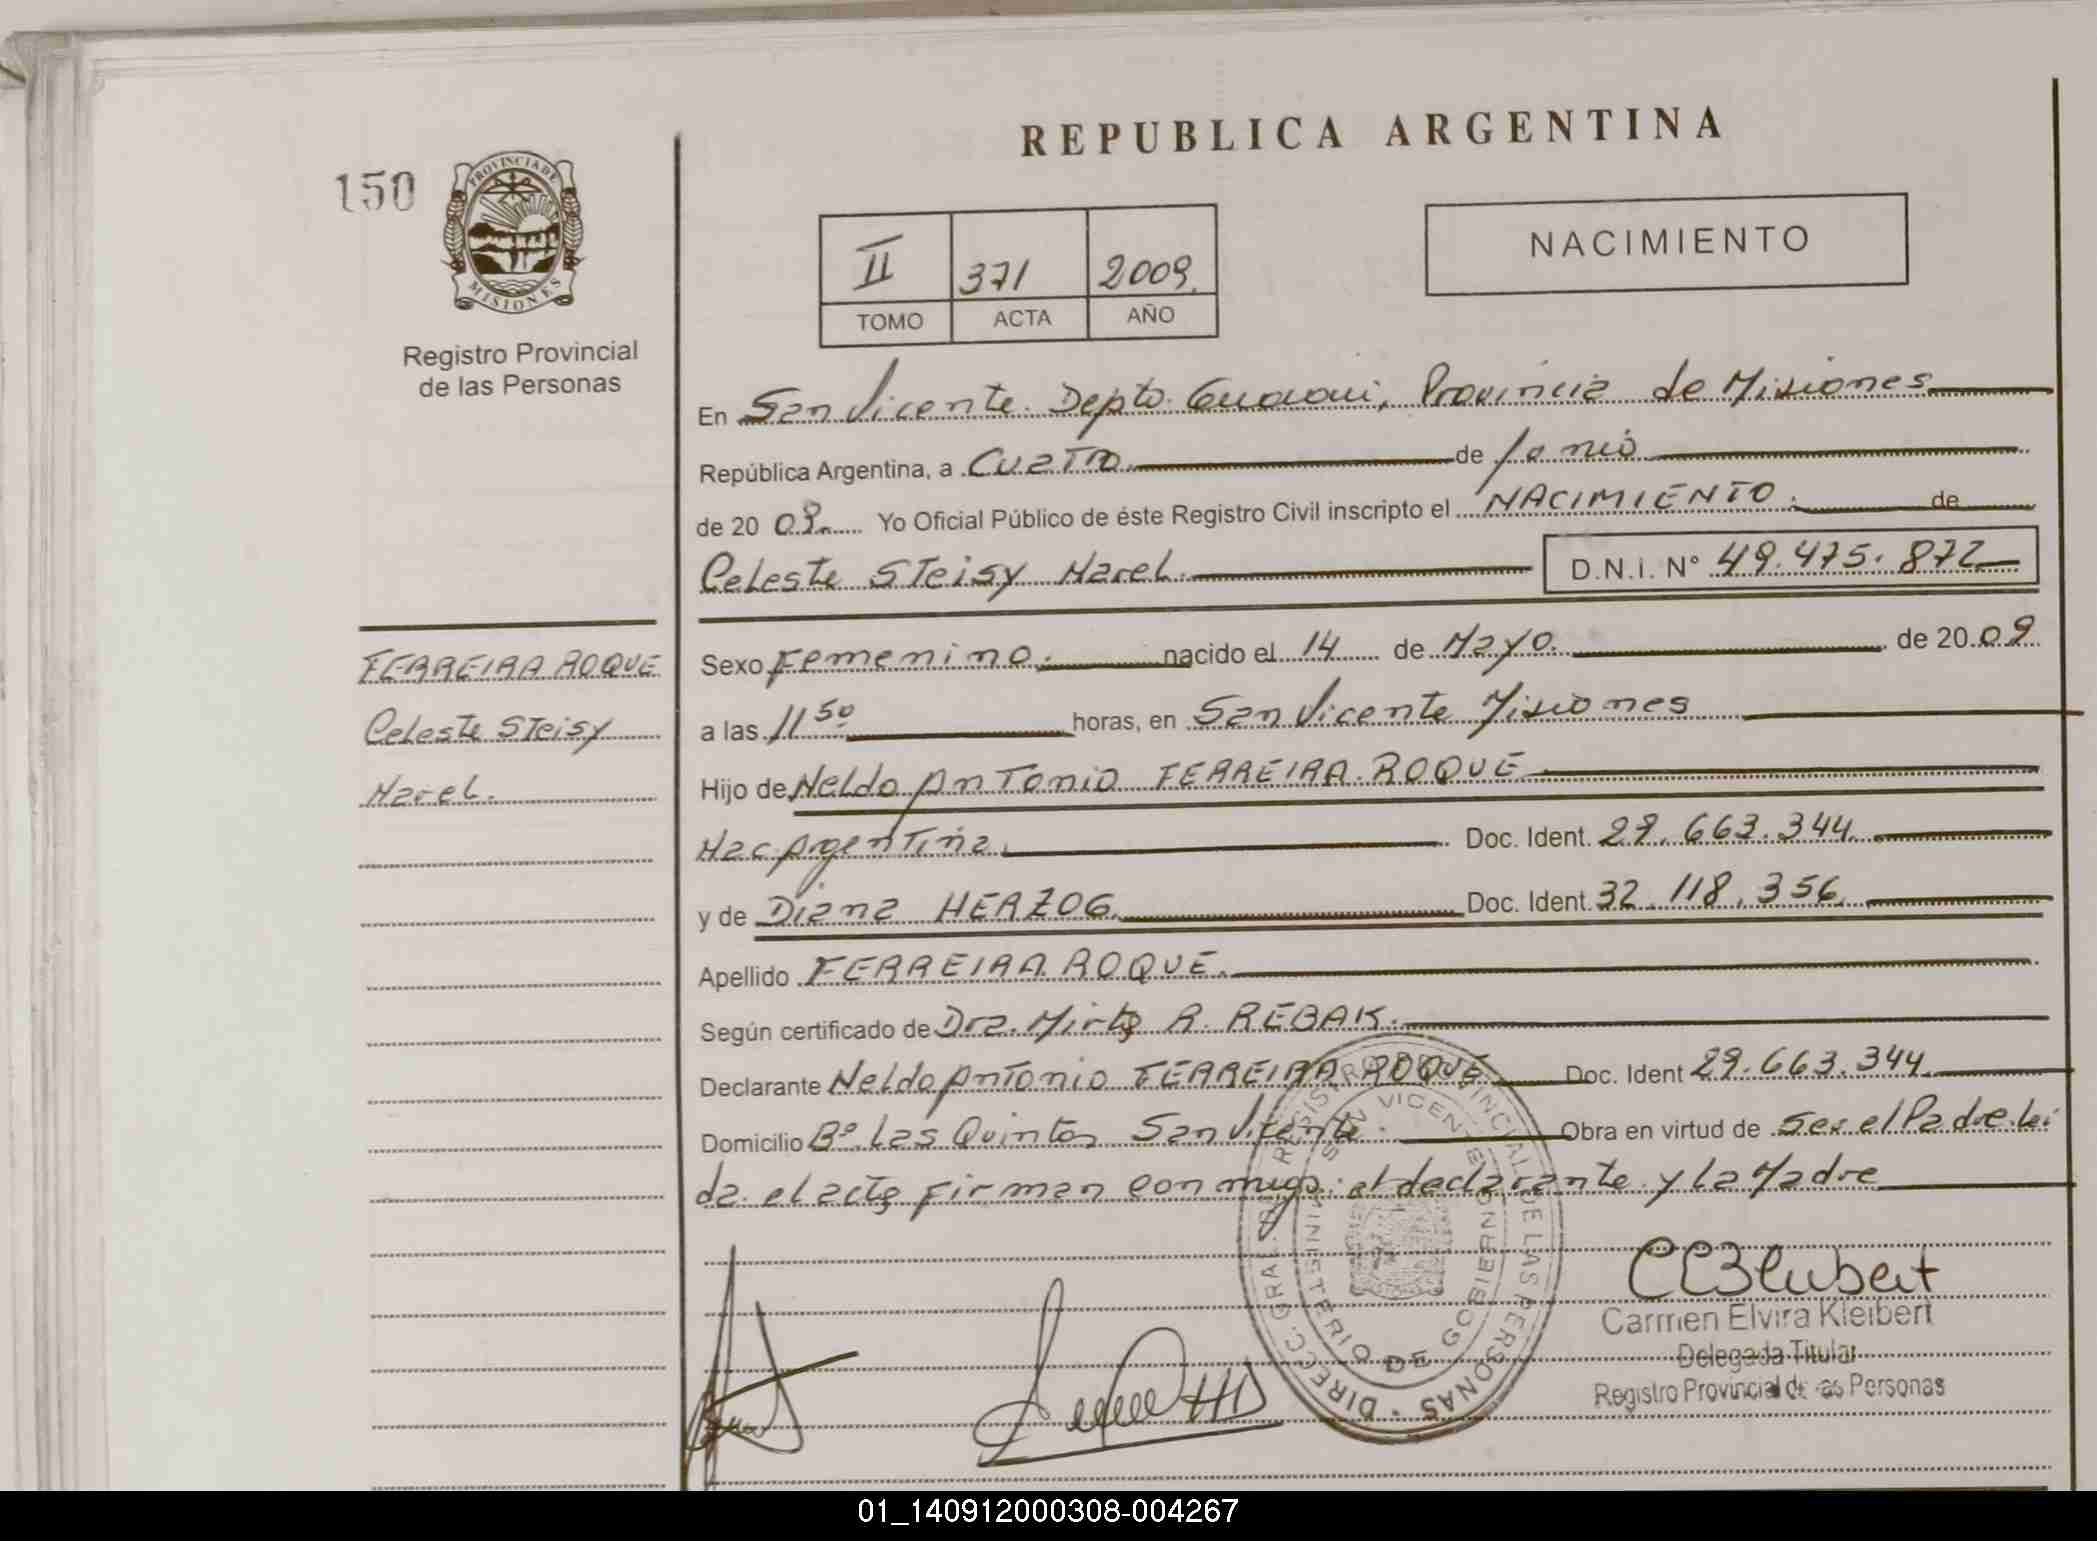 REPUBLICA ARGENTINA
150
PROVINCIA DE
MISIONES
Registro Provincial
de las Personas
II 371 2009.
TOMO ACTA AÑO
NACIMIENTO
En San Vicente Depto. Guarani, Provincia de Misiones
República Argentina, a Cuatro de Junio
de 20 09. Yo Oficial Público de éste Registro Civil inscripto el NACIMIENTO. de
Celeste STeisy Narel. D.N.I. N° 49.475.872
FERREIRA ROQUE
Celeste STeisy
Narel.
Sexo Femenino. nacido el 14 de Mayo. de 20 09
a las 11 50 horas, en San Vicente Misiones
Hijo de Neldo AnTonio FERREIRA ROQUE
Nac. ArgenTina. Doc. Ident. 29.663.344
y de Diana HERZOG Doc. Ident. 32.118.356
Apellido FERREIRA ROQUE.
Según certificado de Dra. Mirta R. REBAK.
Declarante Neldo AnTonio FERREIRA ROQUE Doc. Ident 29.663.344
Domicilio B° Las Quintas San Vicente. Obra en virtud de ser el Padre. Lei
da el acta firman conmigo: el declarante y La Madre
DIRECC. GRAL. REGISTRO PROVINCIAL DE LAS PERSONAS
SAN VICENTE
MINISTERIO DE GOBIERNO
Carmen Elvira Kleibert
Delegada Titular
Registro Provincial de las Personas
01_140912000308-004267